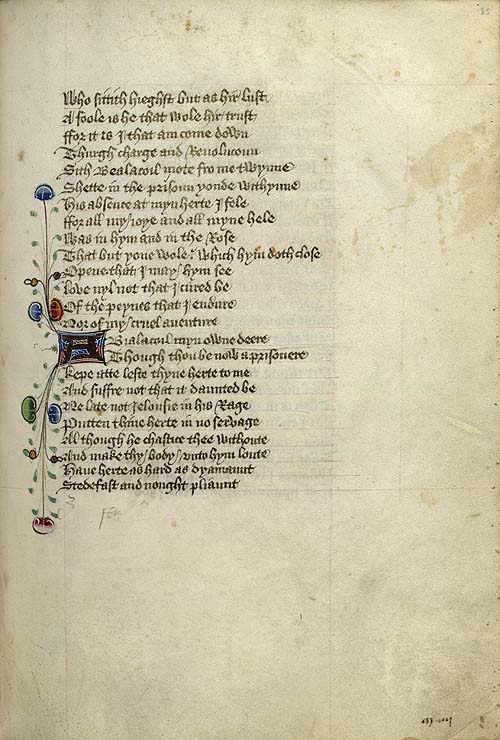 85
Who sittith hieghst but as hir lust
A foole is he that wole hir trust
ffor it is I that am come down
Thurgh charge and Revolucoun
Sith Bealacoil mote fro me twynne
Shette in the prisoun yonde withynne
His absence at myn herte I fele
ffor all my ioye and all myne hele
Was in hym and in the Rose
That but yone wole which hym doth close
Opene that I may hym see
Love nyl not that I cured be
Of the peynes that I endure
Nor of my cruel aventure
Bialacoil myn owne deere
Though thou be now a prisonere
Kepe atte leste thyne herte to me
And suffre not that it daunted be
Ne late not Jelousie in his Rage
Putten thine herte in no servage
All though he chastice thee withoute
And make thy body unto hym loute
Have herte as hard as dyamaunt
Stedefast and nought pliaunt